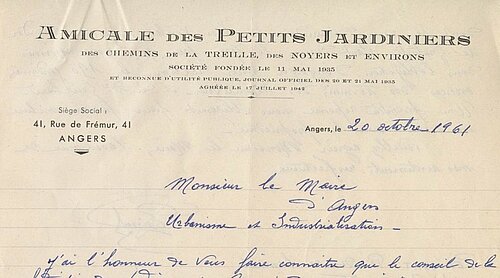 AMICALE DES PETITS JARDINIERS
DES CHEMINS DE LA TREILLE, DES NOYERS ET ENVIRONS
SOCIÉTÉ FONDÉE LE 11 MAI 1935
ET RECONNUE D'UTILITÉ PUBLIQUE, JOURNAL OFFICIEL DES 20 ET 21 MAI 1935
AGRÉÉE LE 17 JUILLET 1942
Siège Social :
41, Rue de Frémur, 41
ANGERS
Angers, le 20 octobre 1961
Monsieur le Maire
d'Angers
Urbanisme et Industrialisation -
J'ai l'honneur de Vous faire connaître que le conseil de la